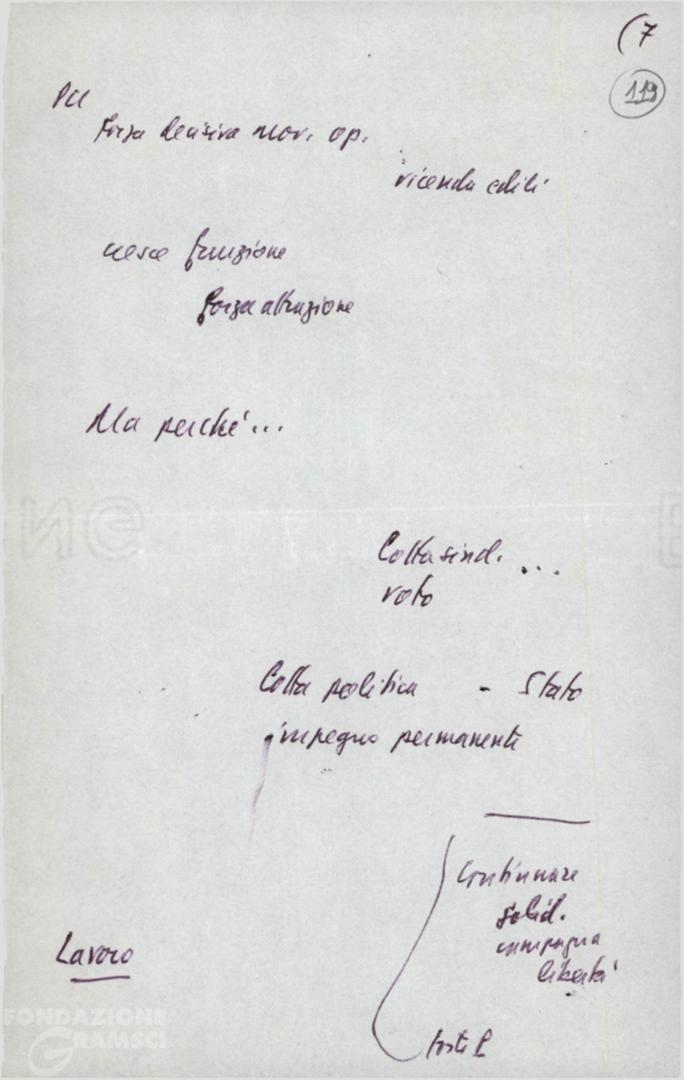 (7
119
PCI
Forza decisiva mov. op.
vicenda edili
cresce funzione
forza attrazione
Ma perché...
Lotta sind. ...
voto
Lotta politica - Stato
impegno permanente
Continuare
solid.
campagna
libertà
Lavoro
forte P
FONDAZIONE
GRAMSCI